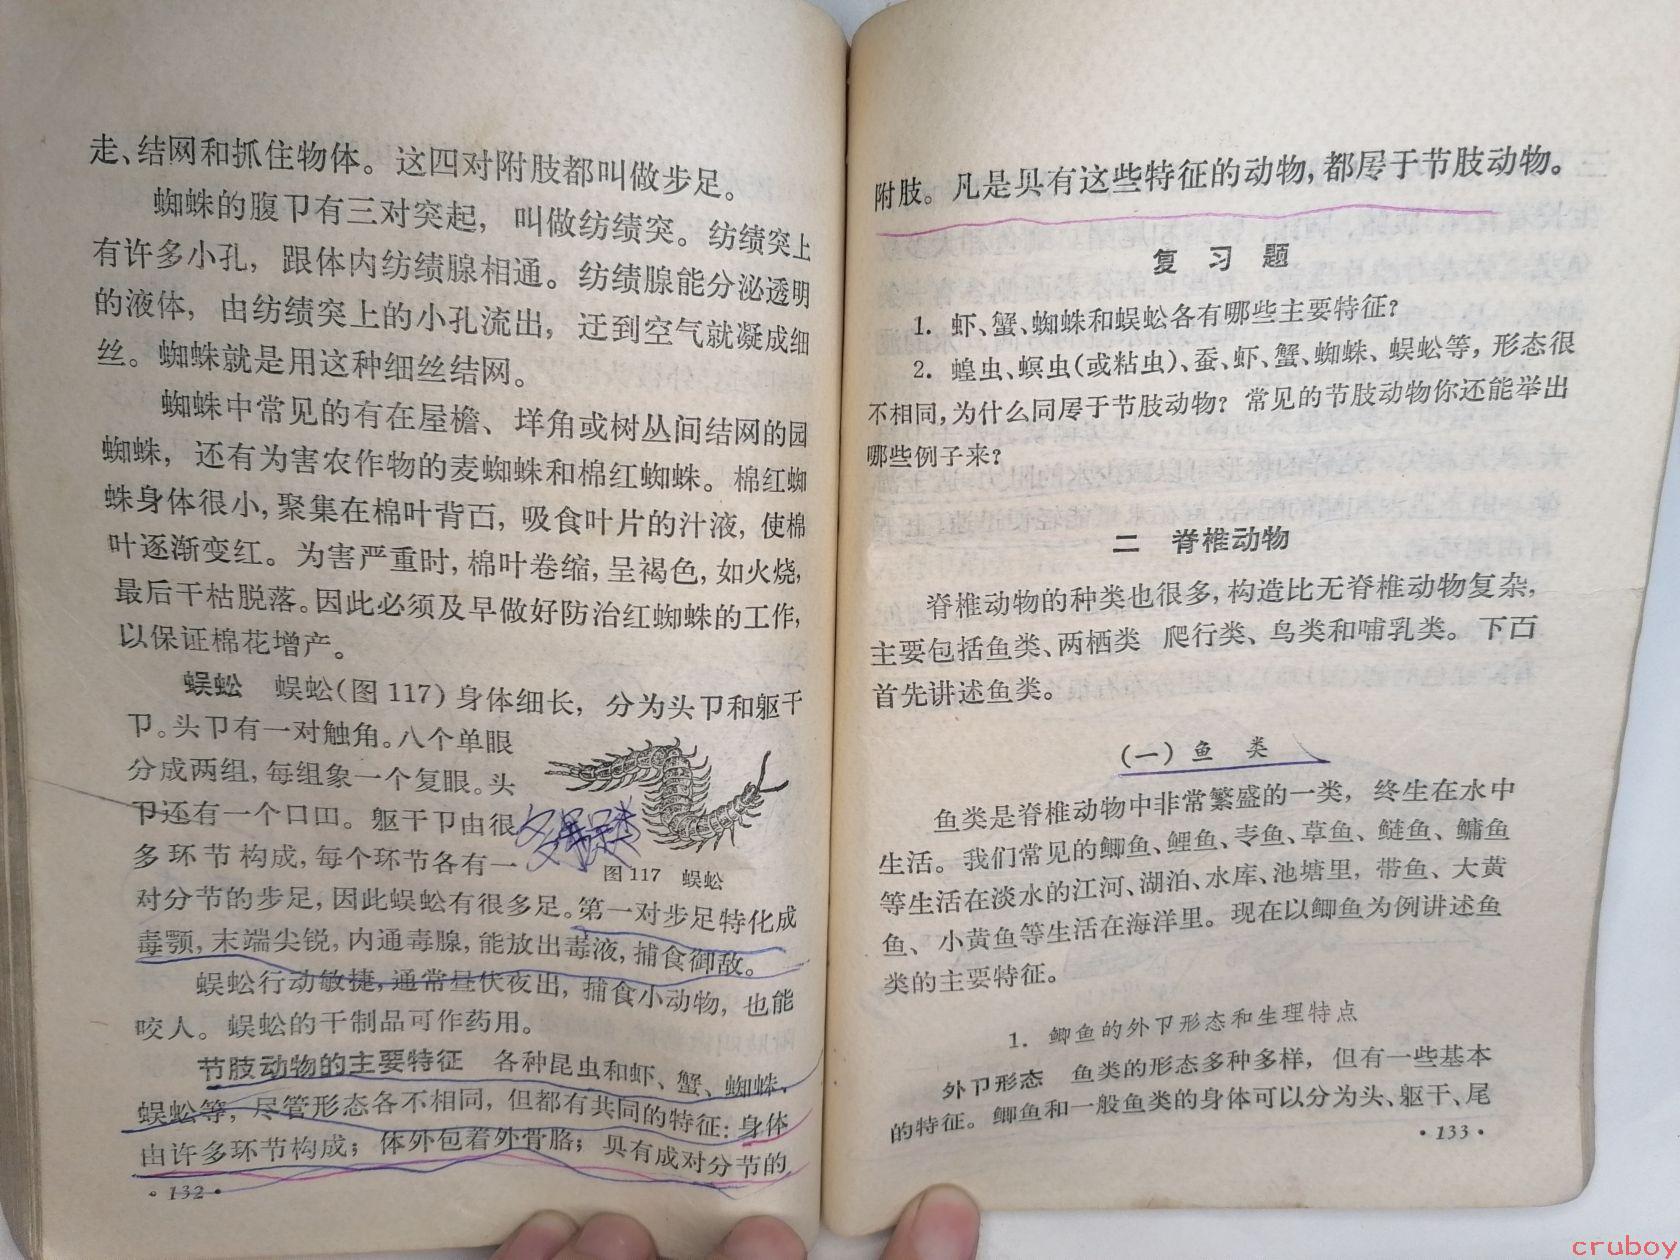 走、结网和抓住物体。这四对附肢都叫做步足。
蜘蛛的腹卩有三对突起，叫做纺绩突。纺绩突上
有许多小孔，跟体内纺绩腺相通。纺绩腺能分泌透明
的液体，由纺绩突上的小孔流出，迂到空气就凝成细
丝。蜘蛛就是用这种细丝结网。
蜘蛛中常见的有在屋檐、垟角或树丛间结网的园
蜘蛛，还有为害农作物的麦蜘蛛和棉红蜘蛛。棉红蜘
蛛身体很小，聚集在棉叶背面，吸食叶片的汁液，使棉
叶逐渐变红。为害严重时，棉叶卷缩，呈褐色，如火烧，
最后干枯脱落。因此必须及早做好防治红蜘蛛的工作，
以保证棉花增产。
蜈蚣　蜈蚣(图117)身体细长，分为头卩和躯干
卩。头卩有一对触角。八个单眼
分成两组，每组象一个复眼。头
卩还有一个口器。躯干卩由很
多环节构成，每个环节各有一
图117　蜈蚣
对分节的步足，因此蜈蚣有很多足。第一对步足特化成
毒颚，末端尖锐，内通毒腺，能放出毒液，捕食御敌。
蜈蚣行动敏捷，通常昼伏夜出，捕食小动物，也能
咬人。蜈蚣的干制品可作药用。
节肢动物的主要特征　各种昆虫和虾、蟹、蜘蛛、
蜈蚣等，尽管形态各不相同，但都有共同的特征：身体
由许多环节构成；体外包着外骨胳；具有成对分节的
·132·
附肢。凡是具有这些特征的动物，都属于节肢动物。
复习题
1. 虾、蟹、蜘蛛和蜈蚣各有哪些主要特征？
2. 蝗虫、螟虫(或粘虫)、蚕、虾、蟹、蜘蛛、蜈蚣等，形态很
不相同，为什么同属于节肢动物？常见的节肢动物你还能举出
哪些例子来？
二　脊椎动物
脊椎动物的种类也很多，构造比无脊椎动物复杂，
主要包括鱼类、两栖类　爬行类、鸟类和哺乳类。下面
首先讲述鱼类。
(一)鱼　类
鱼类是脊椎动物中非常繁盛的一类，终生在水中
生活。我们常见的鲫鱼、鲤鱼、青鱼、草鱼、鲢鱼、鳙鱼
等生活在淡水的江河、湖泊、水库、池塘里，带鱼、大黄
鱼、小黄鱼等生活在海洋里。现在以鲫鱼为例讲述鱼
类的主要特征。
1. 鲫鱼的外卩形态和生理特点
外卩形态　鱼类的形态多种多样，但有一些基本
的特征。鲫鱼和一般鱼类的身体可以分为头、躯干、尾
·133·
cruboy